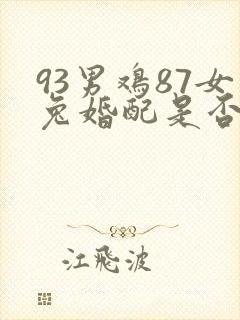 93男鸡87女
兔婚配是否
江飛波